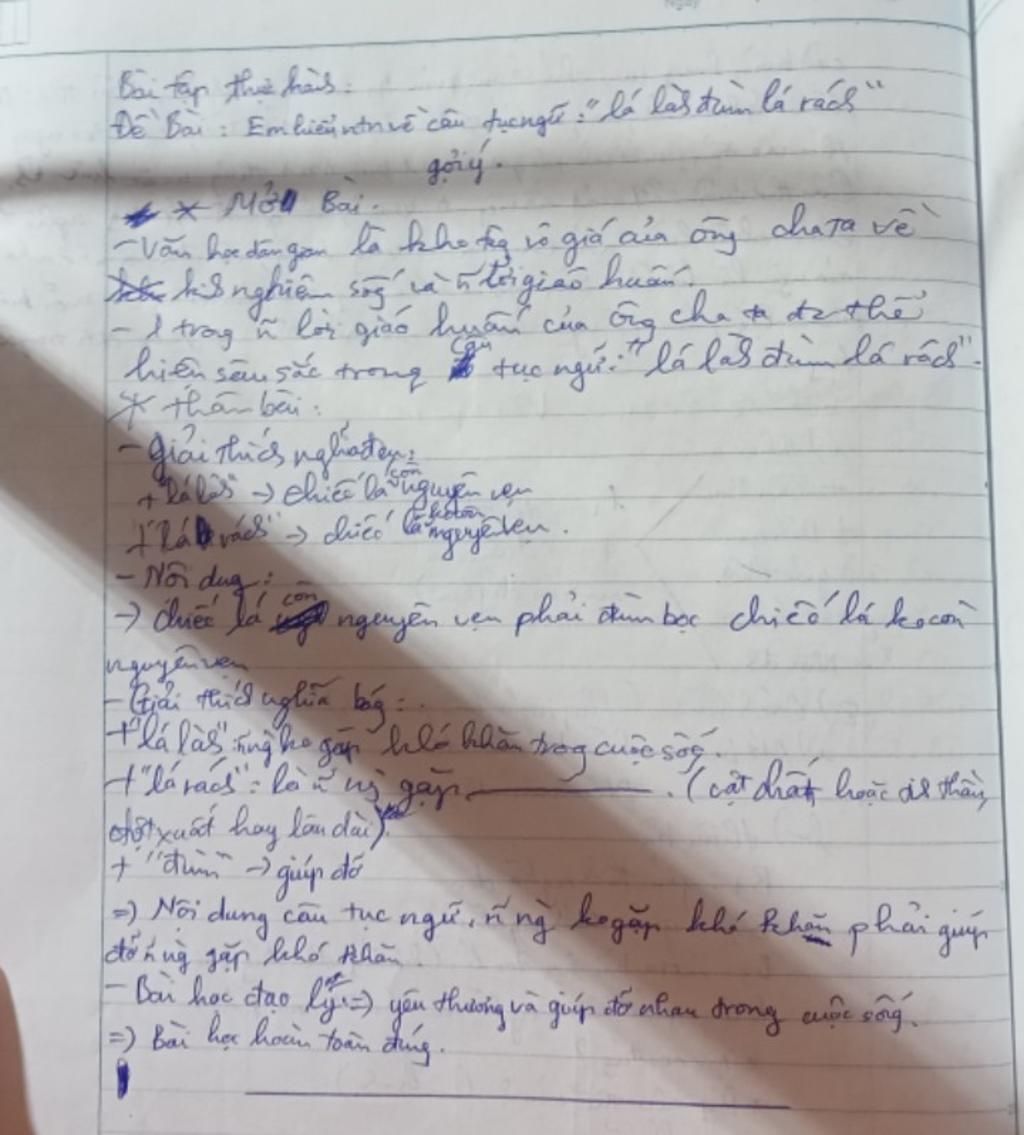 Bài tập thực hàh:
Đề Bài: Em hiểu ntn về câu tục ngữ: "lá làh đùm lá rách"
gợi ý.
* Mở Bài.
- Văn học dân gian là kho tàg vô giá của ôg cha ta về
kih nghiệm sốg và ~n lời giáo huấn.
- 1 trog ~n lời giáo huấn của ôg cha ta đc thể
hiện sâu sắc trong câu tục ngữ: "lá làh đùm lá rách".
* thân bài:
- Giải thích nghĩa đen:
+ "lá làh" -> chiếc lá còn nguyên vẹn
+ "lá rách" -> chiếc lá không nguyên vẹn.
- Nội dug:
-> chiếc lá còn nguyên vẹn phải đùm bọc chiếc lá ko còn
nguyên vẹn
- Giải thích nghĩa bóg:
+ "lá làh": ~n ng ko gặp khó khăn trog cuộc sốg.
+ "lá rách": là ~n ng gặp ________. (vật chất hoặc tih thần,
đột xuất hay lâu dài)
+ "đùm" -> giúp đỡ
=> Nội dung câu tục ngữ, ~n ng ko gặp khó khăn phải giúp
đỡ ~n ng gặp khó khăn.
- Bài học đạo lý => yêu thương và giúp đỡ nhau trong cuộc sống.
=> Bài học hoàn toàn đúng.